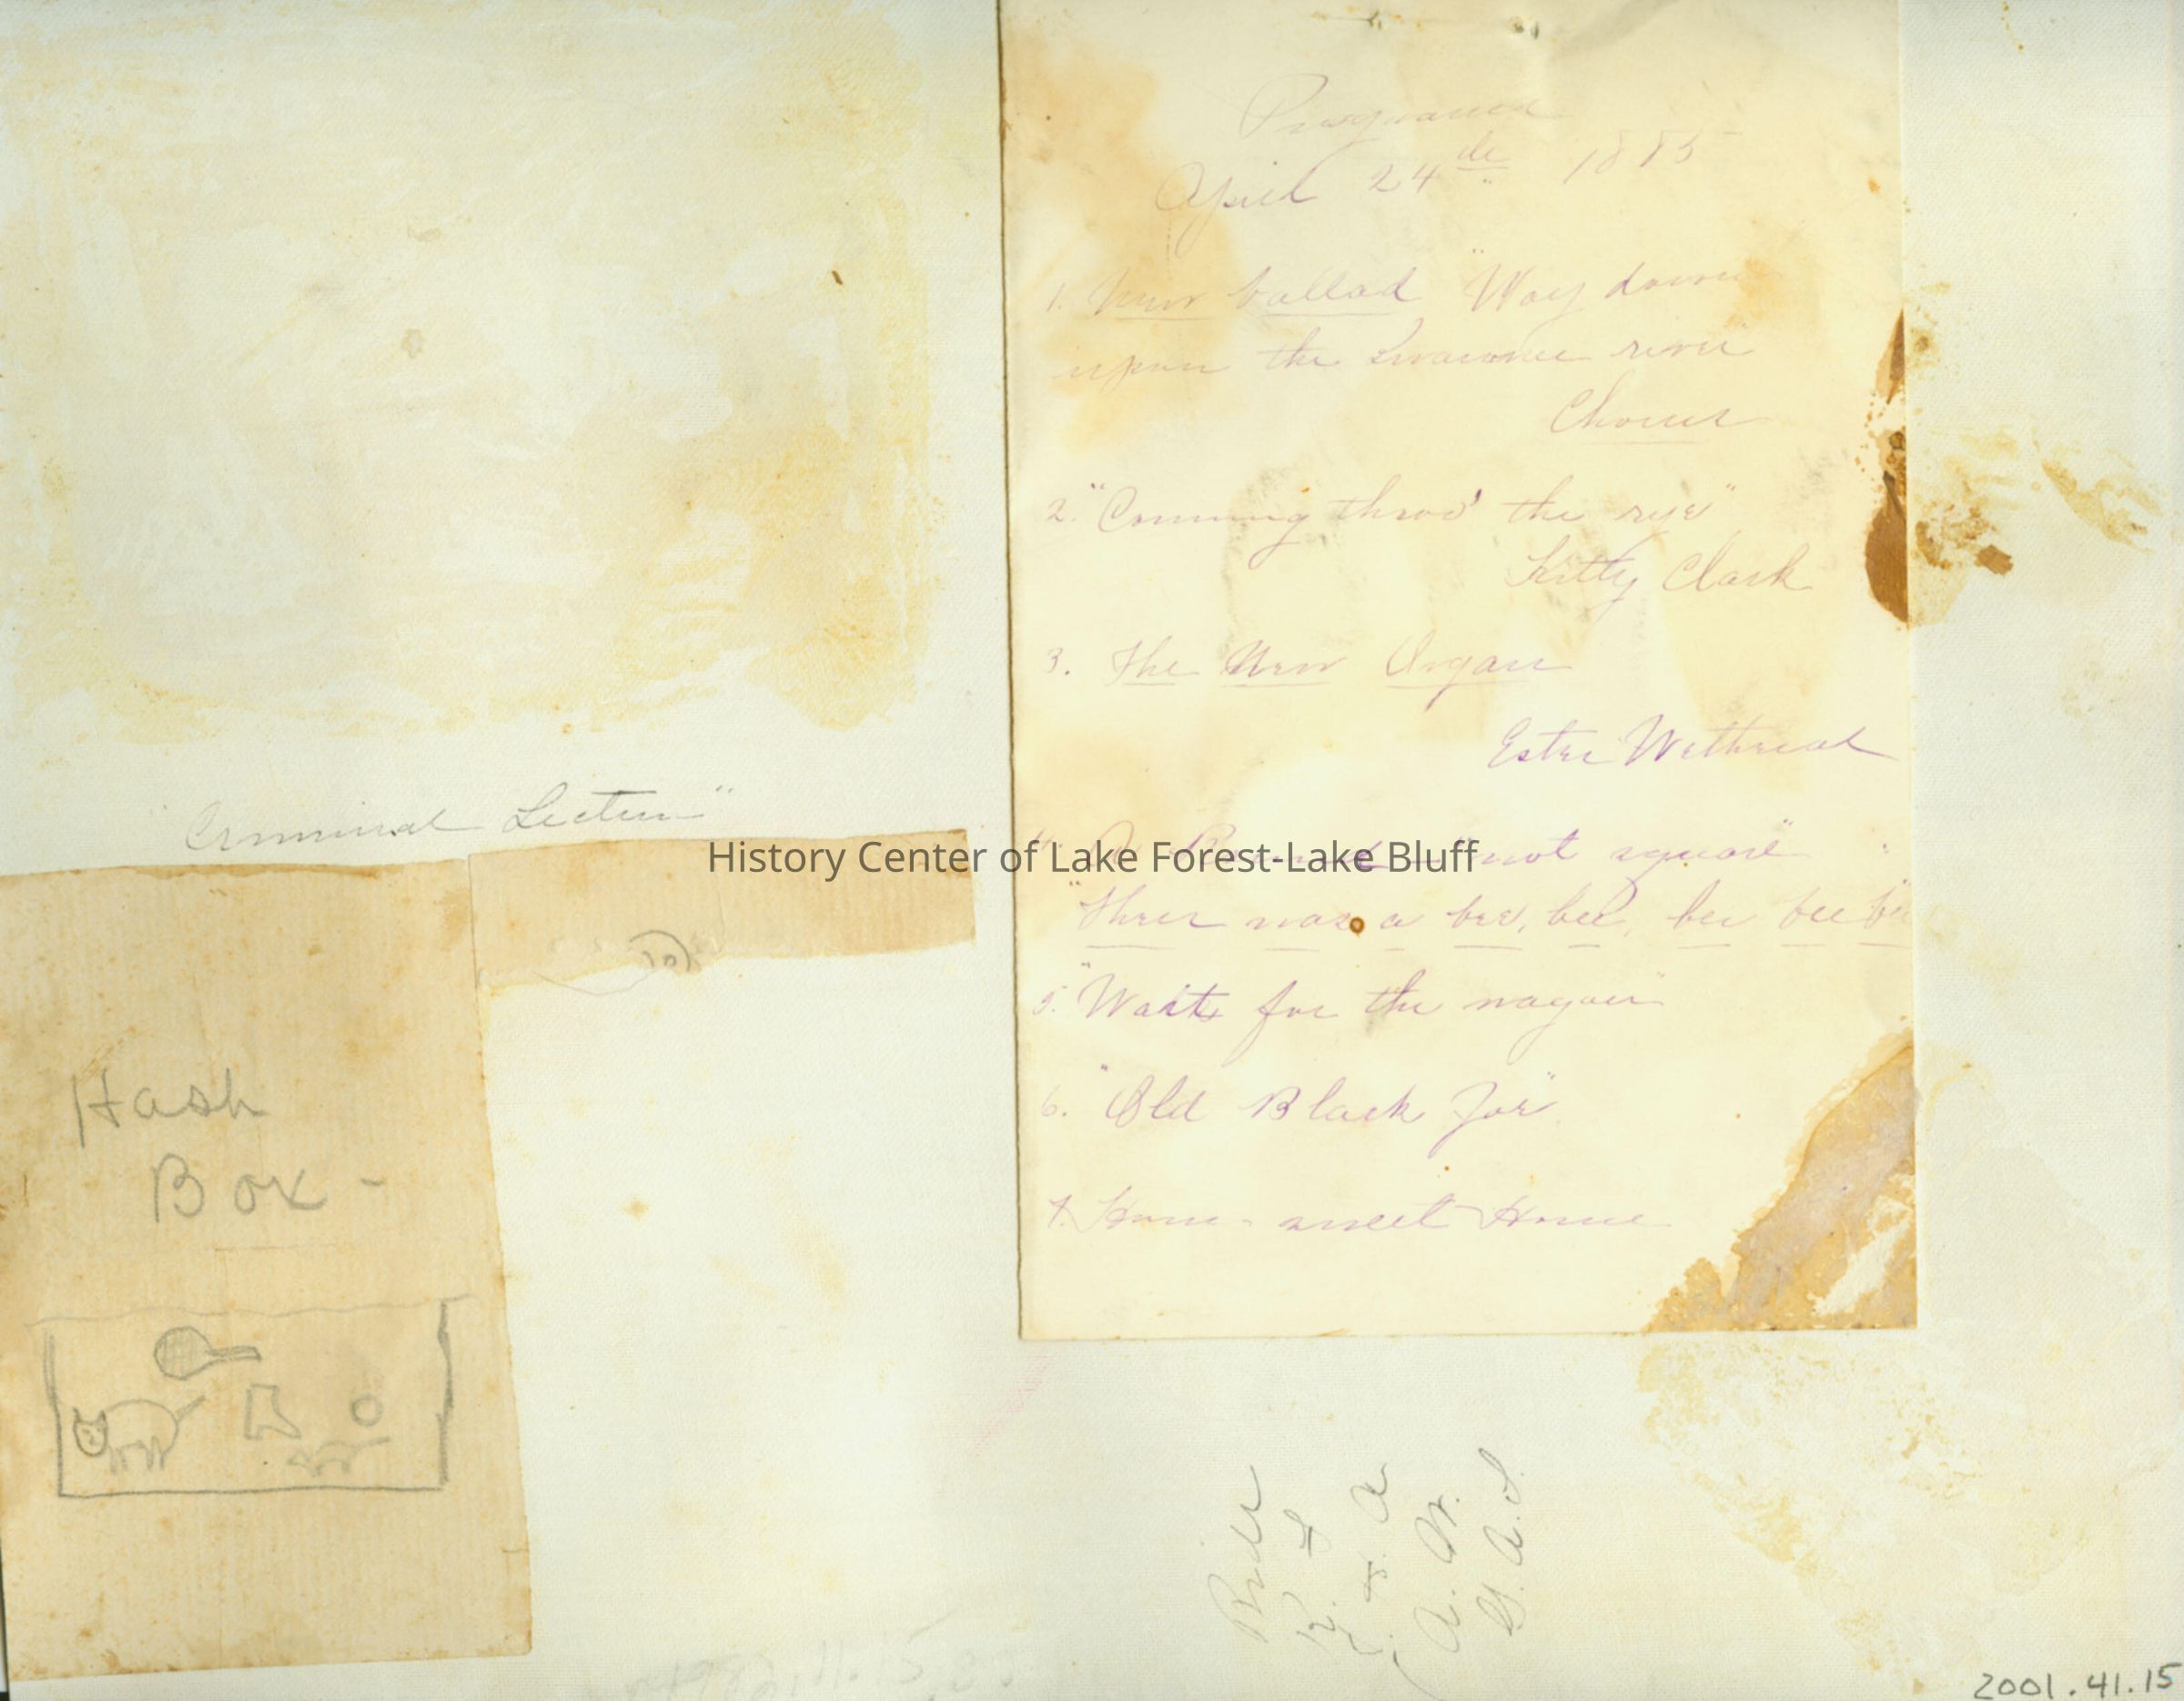 "Criminal Lecture"
Hash
Box -
Programme
April 24th 1885
1. New ballad "Way down
upon the Swawnee river
Chorus
2. "Comming thro' the rye"
Kitty Clark
3. The New Organ
Ester Wethread
4. A Round "not square"
"There was a bee, bee, bee bee b
5. "Wait for the wagon"
6. "Old Black Joe"
7. Home - sweet Home
History Center of Lake Forest-Lake Bluff
A. W.
2001.41.15